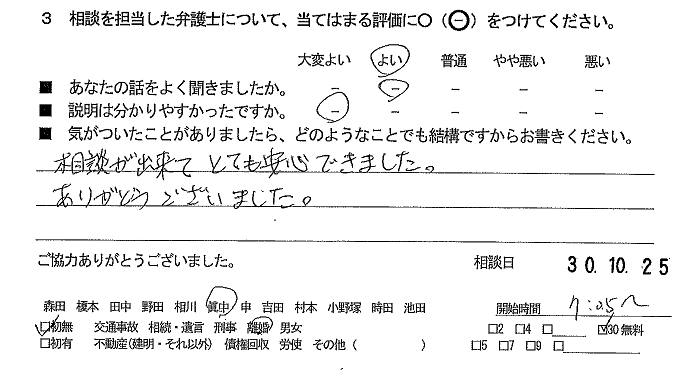 3 相談を担当した弁護士について、当てはまる評価に○（⊖）をつけてください。
大変よい よい 普通 やや悪い 悪い
■ あなたの話をよく聞きましたか。 － － － － －
■ 説明は分かりやすかったですか。 － － － － －
■ 気がついたことがありましたら、どのようなことでも結構ですからお書きください。
相談が出来て とても安心できました。
ありがとうございました。
ご協力ありがとうございました。 相談日 30.10.25
森田 榎本 田中 野田 相川 眞中 申 吉田 村本 小野塚 時田 池田 開始時間 7:05〜
☑初無 交通事故 相続・遺言 刑事 離婚 男女 □2 □4 □ ☑30無料
□初有 不動産(建明・それ以外) 債権回収 労使 その他（ ） □5 □7 □9 □